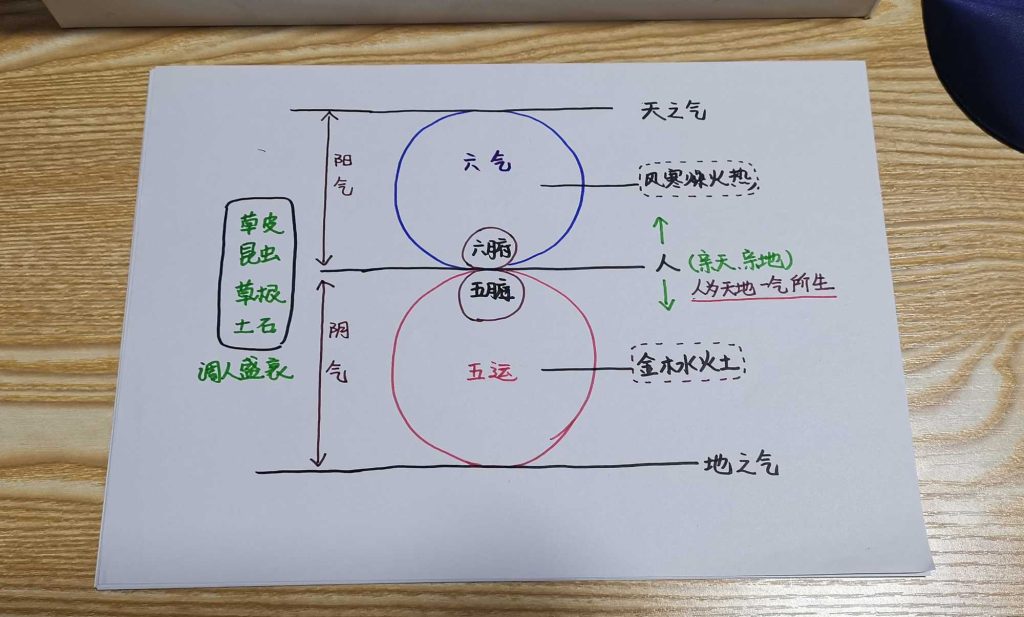 天之气
阳
气
六气
风寒燥火热
六腑
草皮
昆虫
草根
土石
调人盛衰
人
(亲天、亲地)
人为天地一气所生
五脏
阴
气
五运
金木水火土
地之气